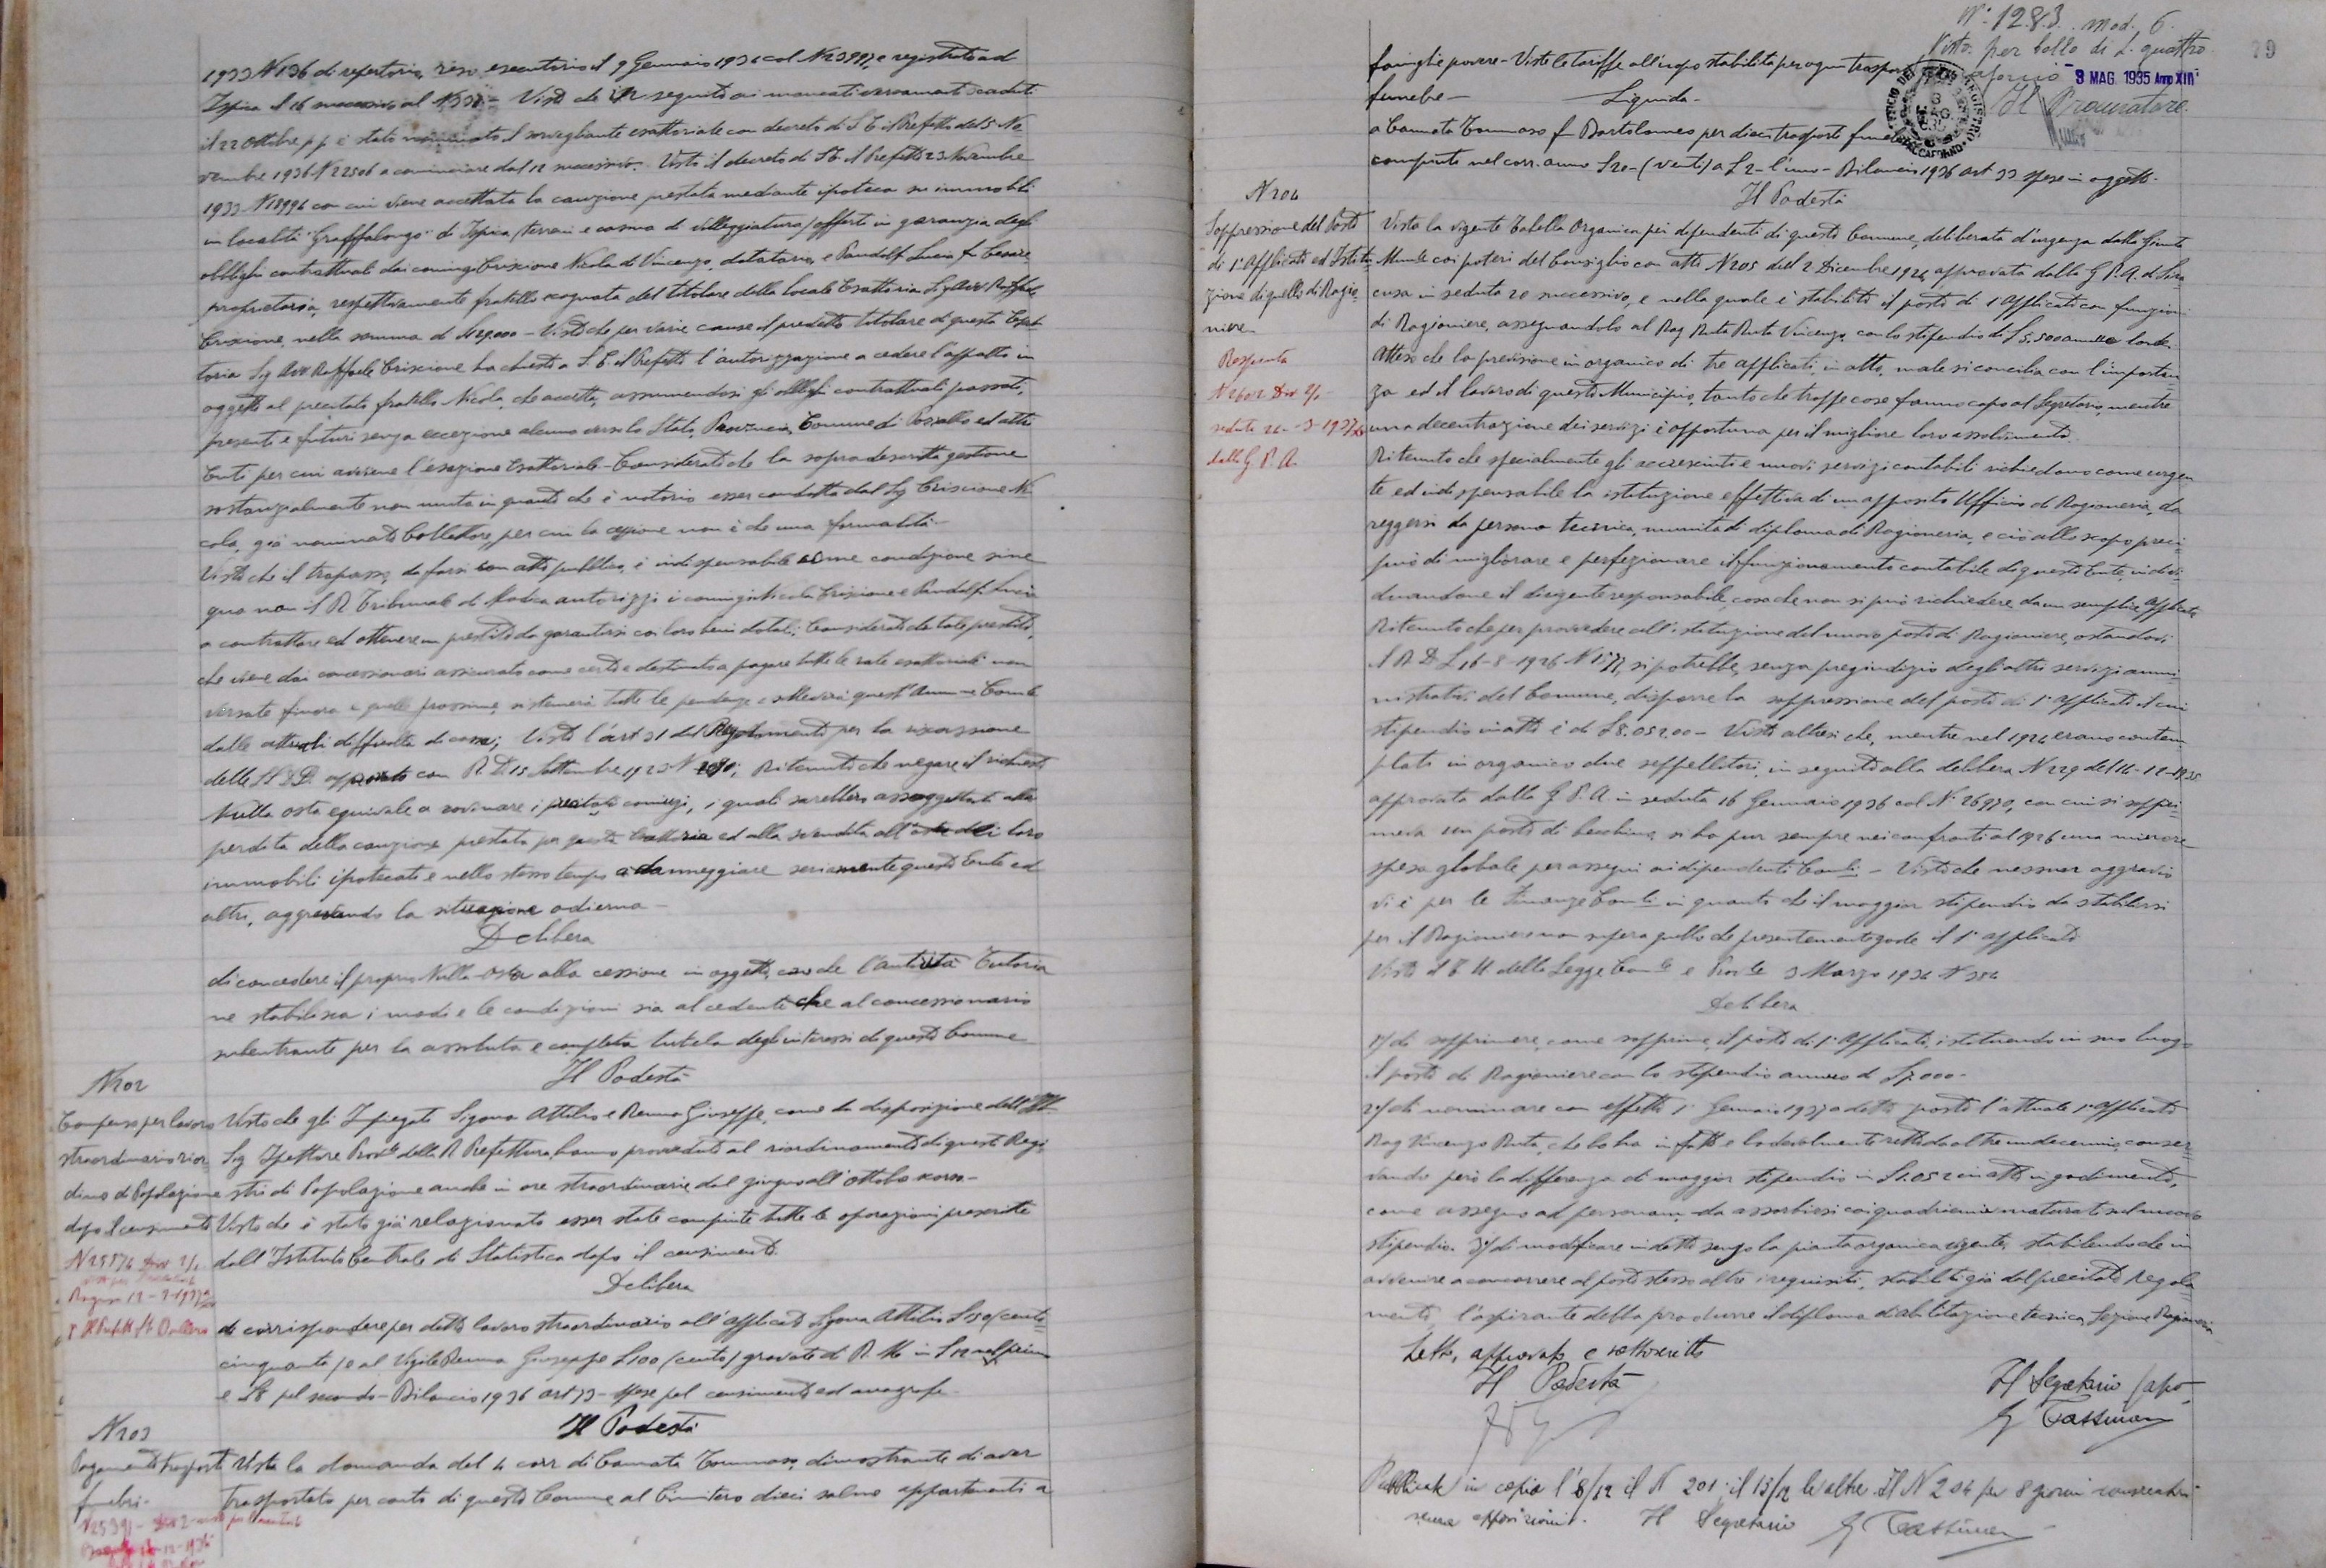 1933 N 136 di repertorio, reso esecutorio il 9 Gennaio 193 col N 23997, e registrato ad
Ispica il 16 successivo al N - Visto che in seguito ai mancati versamenti scaduti
il 22 Ottobre p.p. è stato nominato il sorvegliante esattoriale con decreto di S. E. il Prefetto del 5 No
vembre 1936 N 22506 a cominciare dal 12 successivo. Visto il decreto di S.E. il Prefetto 23 Novembre
1933 N 18994 con cui viene accettata la cauzione prestata mediante ipoteca su immobili
in località "Graffalongo" di Ispica (terreni e casina di villeggiatura) offerti in garanzia degli
obblighi contrattuali dai coniugi Criscione Nicola di Vincenzo, dotatario, e Pandolfi Lucia fu Cesare
proprietaria, rispettivamente fratello e cognata del titolare della locale Esattoria Sig. Avv. Raffaele
Criscione, nella somma di - Visto che per varie cause il predetto titolare di questa Esat
toria Sig Avv Raffaele Criscione ha chiesto a S. E. il Prefetto l'autorizzazione a cedere l'appalto in
oggetto al precitato fratello Nicola, che accetta, assumendosi gli obblighi contrattuali passati,
presenti e futuri senza eccezione alcuna verso lo Stato, Provincia, Comune di Pozzallo ed altri
Enti per cui avviene l'esazione Esattoriale - Considerato che la sopradescritta gestione
sostanzialmente non muta in quanto che è notorio esser condotta dal Sig Criscione Ni
cola, già nominato Collettore, per cui la cessione non è che una formalità -
Visto che il trapasso, da farsi con atto pubblico, è indispensabile come condizione sine
qua non il R. Tribunale di Modica autorizzi i coniugi Nicola Criscione e Pandolfi Lucia
a contrattare ed ottenere un prestito da garantirsi coi loro beni dotali; Considerato che tale prestito,
che viene dai concessionari assicurato come certo e destinato a pagare tutte le rate esattoriali non
versate finora e quelle prossime, sistemerà tutte le pendenze e solleverà quest'Amm.ne Com.le
dalle attuali difficoltà di cassa; Visto l'art 31 del Regolamento per la riscossione
delle II. DD. approvato con R. D. 15 Settembre 1923 N 2090; Ritenuto che negare il richiesto
Nulla osta equivale a rovinare i precitati coniugi, i quali sarebbero assoggettati alla
perdita della cauzione prestata per questa Esattoria ed alla svendita all'asta dei loro
immobili ipotecati e nello stesso tempo a danneggiare seriamente questo Ente ed
altri, aggravando la situazione odierna -
Delibera
di concedere il proprio Nulla-Osta alla cessione in oggetto, che l'autorità Tutoria
ne stabilisca i modi e le condizioni sia al cedente che al concessionario
subentrante per la assoluta e completa tutela degli interessi di questo Comune
Il Podestà
N 202
Compenso per lavoro
straordinario rior
dino di Popolazione
dopo il censimento
N 25874 Div 2/1
Ragusa 12-2-1937
Il Prefetto
Visto che gli Impiegati Sigona Attilio e Renna Giuseppe, come da disposizione dell'Ill.
Sig Ispettore Prov.le della R Prefettura, hanno provveduto al riordinamento di questi Regi
stri di Popolazione anche in ore straordinarie dal giugno all'ottobre scorso -
Visto che è stato già relazionato esser state compiute tutte le operazioni prescritte
dall'Istituto Centrale di Statistica dopo il censimento.
Delibera
di corrispondere per detto lavoro straordinario all'applicato Sigona Attilio L 150 (cento
cinquanta) e al Vigile Renna Giuseppe L 100 (cento) gravate di R. M. in L 12 nel primo
e L 8 pel secondo - Bilancio 1936 art 33 - spese pel censimento ed anagrafe -
Il Podestà
N 203
Pagamento trasporti
funebri -
N 25391 -
Visto la domanda del 4 corr di Cannata Tommaso, dimostrante di aver
trasportato per conto di questo Comune al Cimitero dieci salme appartenenti a
N° 1283. mod. 6.
Visto per bollo di L. quattro
8 MAG. 1935 Anno XIII
Il Procuratore
79
famiglie povere - Viste le tariffe all'uopo stabilite per ogni trasporto
funebre - Liquida -
a Cannata Tommaso fu Bartolomeo per dieci trasporti funebri
compiuti nel corr. anno L 20 - (venti) a L 2 - l'uno - Bilancio 1936 art 33 spese in oggetto -
Il Podestà
N 204
Soppressione del Posto
di 1° Applicato ed Istitu
zione di quello di Ragio
niere -
Respinta
N 2602 Div 2/1 -
seduta 24-3-1937
dalla G P. A.
Visto la vigente Tabella Organica pei dipendenti di questo Comune, deliberata d'urgenza dalla Giunta
Mun.le coi poteri del Consiglio con atto N 205 del 2 Dicembre 1924, approvata dalla G P. A. di Sira
cusa in seduta 20 successivo, e nella quale è stabilito il posto di 1° Applicato con funzioni
di Ragioniere, assegnandolo al Rag Ruta Vincenzo con lo stipendio di L 5.500 annue lorde -
Atteso che la previsione in organico di tre applicati, in atto, male si concilia con l'importan
za ed il lavoro di questo Municipio, tanto che troppe cose fanno capo al Segretario, mentre
una decentrazione dei servizi è opportuna per il migliore loro assolvimento.
Ritenuto che specialmente gli accresciuti e nuovi servizi contabili richiedono come urgen
te ed indispensabile la istituzione effettiva di un apposito Ufficio di Ragioneria, da
reggersi da persona tecnica, munita di diploma di Ragioneria, e ciò allo scopo preci
puo di migliorare e perfezionare il funzionamento contabile di questo Ente, indivi
duandone il dirigente responsabile, cosa che non si può richiedere da un semplice applicato
Ritenuto che per provvedere all'istituzione del nuovo posto di Ragioniere, ostandovi
il R. D. L. 16-8-1926 N 1577, si potrebbe, senza pregiudizio degli altri servizi ammi
nistrativi del Comune, disporre la soppressione del posto di 1° applicato il cui
stipendio in atto è di L 8.052.00 - Visto altresì che, mentre nel 1924 erano contem
plati in organico due seppellitori, in seguito alla delibera N 229 del 14-12-1935
approvata dalla G. P. A. in seduta 16 Gennaio 1936 col N. 26970, con cui si soppri
meva un posto di becchino, si ha pur sempre nei confronti al 1926 una minore
spesa globale per assegni ai dipendenti Com.li - Visto che nessun aggravio
vi è per le Finanze Com.li in quanto che il maggior stipendio da stabilirsi
per il Ragioniere non supera quello che presentemente gode il 1° applicato
Visto il T. U. della Legge Com.le e Prov.le 3 Marzo 1934 N 384
Delibera
1°) di sopprimere, come sopprime, il posto di 1° Applicato, istituendo in suo luogo
il posto di Ragioniere con lo stipendio annuo di L 7.000 -
2°) di nominare con effetto 1° Gennaio 1937 a detto posto l'attuale 1° applicato
Rag Vincenzo Ruta, che lo ha in fatto e lodevolmente retto da oltre un decennio, conser
vando però la differenza di maggior stipendio in L 1.052 in atto in godimento,
come assegno ad personam, da assorbirsi coi quadrienni maturati sul nuovo
stipendio. 3°) di modificare in detto senso la pianta organica vigente, stabilendo che in
avvenire a concorrere al posto stesso oltre i requisiti, stabiliti già dal precitato Regola
mento, l'aspirante debba produrre il diploma di abilitazione tecnica, Sezione Ragioneria
Letto, approvato e sottoscritto
Il Podestà
Il Segretario Capo
G Tassinari
Pubblicate in copia l'8/12 il N 201; il 13/12 le altre. Il N 204 per 8 giorni consecutivi
senza opposizioni. Il Segretario G Tassinari